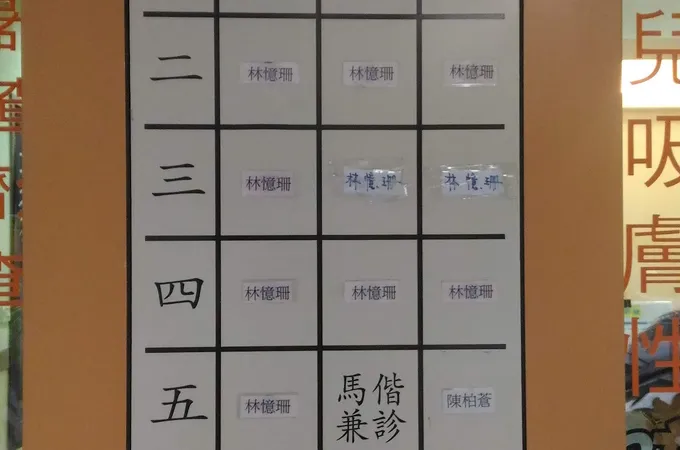 二 林憶珊 林憶珊 林憶珊
三 林憶珊 林憶珊 林憶珊
四 林憶珊 林憶珊 林憶珊
五 林憶珊 馬偕兼診 陳柏蒼
兒吸膚性